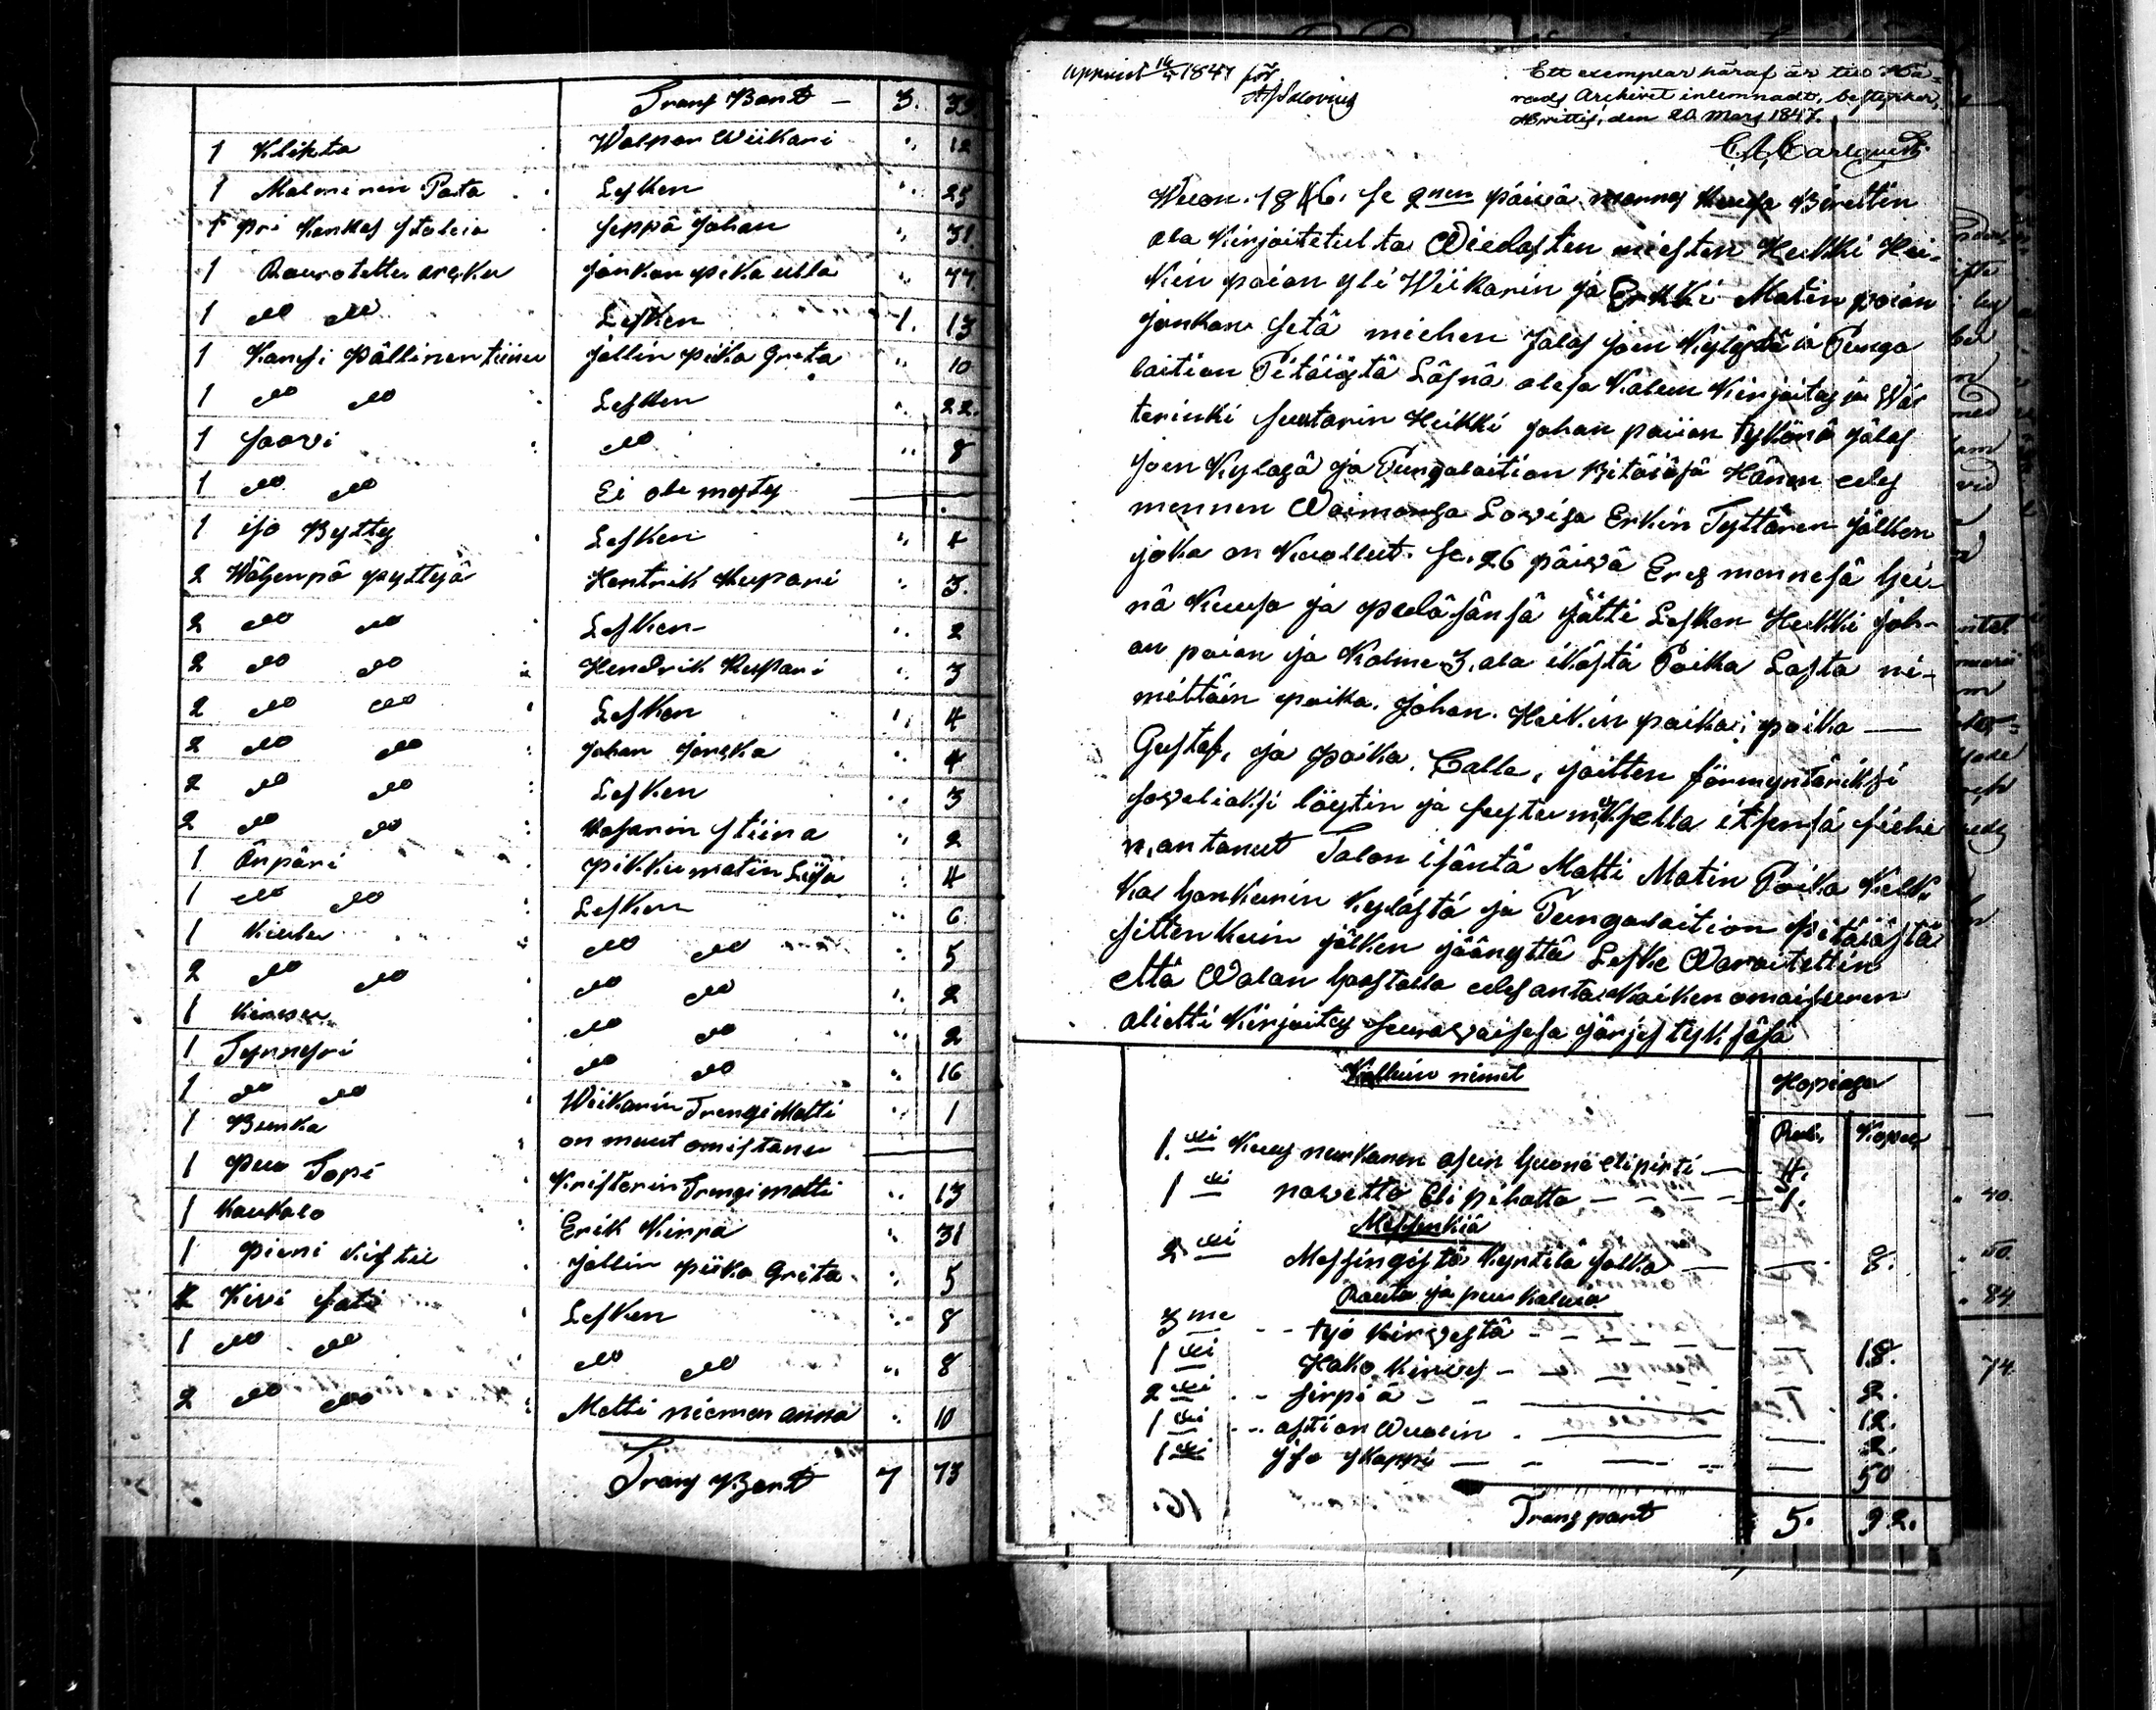 Trans Bort — 3. 39.
1 Klikta Walpor Wiikari " 12
1 Malminen Pata Lesken " 25
1 pri Kankas stolia seppä Johan " 31.
1 Raurotettu arcku Jankan pika ulla " 44
1 do do Lesken 1. 13
1 Kansi Pällinen tiinu Jallin pika Greta " 10
1 do do Lesken " 22.
1 saavi do " 8
1 do do Ei ole mysty
1 iso Bytty Lesken " 4
2 Wähenpä pyttyjä Hentrik Kupari " 3.
2 do do Lesken " 2
2 do do Hendrik Kupari " 3
2 do do Lesken " 4
2 do do Johan Jänskä " 4
2 do do Lesken " 3
2 do do Kasarin stiina " 2
1 Änpäri pikkumatin Liisa " 4
1 do do Lesken " 6
1 Kiulu do do " 5
2 do do do do " 2
1 Kirnu do do " 2
1 Tynnyri do do " 16
1 do do Wiikarin Trengi Matti " 1
1 Bunka on muut omistanu
1 puu Topi Kristerin Trengi matti " 13
1 Kaukalo Erik Kirra " 31
1 pieni Kistu Jallin piika Greta " 5
2 Kivi fati Lesken " 8
1 do do do do " 8
2 do do Matti niemen anna " 10
Trans Bort 7 73
uppvist 16/4 1847 för
Ett exemplar häraf är till Hä-
rads Archivet inlemnadt, bestyrker,
Hvittis, den 20 Mars 1847.
C. A. Carlquist
Wuon. 1846. se 2nen päivä Birettin
ala Kirjoitetulta Wiedosten miesten Heikki Hei-
kin poian yli Wiikarin ja Erkki Matin poian
Jankan setä miehen Jalas joen Kylästä ja Punga
laition Pitäjästä Läsnä olesa Kalun Kirjoitus ja Wär
terinki suutarin Heikki Johan poiian tykönä Jalas
joen Kyläsä ja Pungalaition Bitäjäsä Hänen edes
mennen Waimonsa Lovisa Erkin Tyttären jälken
joka on Kuollut. se. 26 päivä Eres mennesä hei-
nä Kuusa ja peräsänsä jätti Lesken Heikki Joh-
an poian ja Kolme 3. ala ikästä Poika Lasta ni-
mittäin poika. Johan. Heikin poika; poika —
Gustaf, ja poika. Calle, joitten förmyntäriksi
soveliaksi löytin ja suytumiksella itsensä siehe
n, antanut Talon isäntä Matti Matin Poika Kelk
Kal hankurin Kylästä ja Pungalaition pitäjästä
sitten kuin jälken jäänyttä Leske Waroitettin
että Walan haastolla edesanta Kaiken omaisuuen
alietti Kirjoitus seuravaisesa järjestyksäsä
Kalluin nimet Hopiasa
Rub. Kopec
1. xi Kuus nurkanen asun huone eli pirti — 4.
1 xi navetto eli pihatto — 1.
Messenkiä
2 xi Messingistä Kyntilä jalka — 8.
Rauta ja puu kaluia
3 me työ Kirvestä — 18.
1 xi Hako Kirves — 2.
2 xi sirpiä — 12.
1 xi astian Wuolin — 2.
1 xi iso skappi — 50
Transport 5. 92.